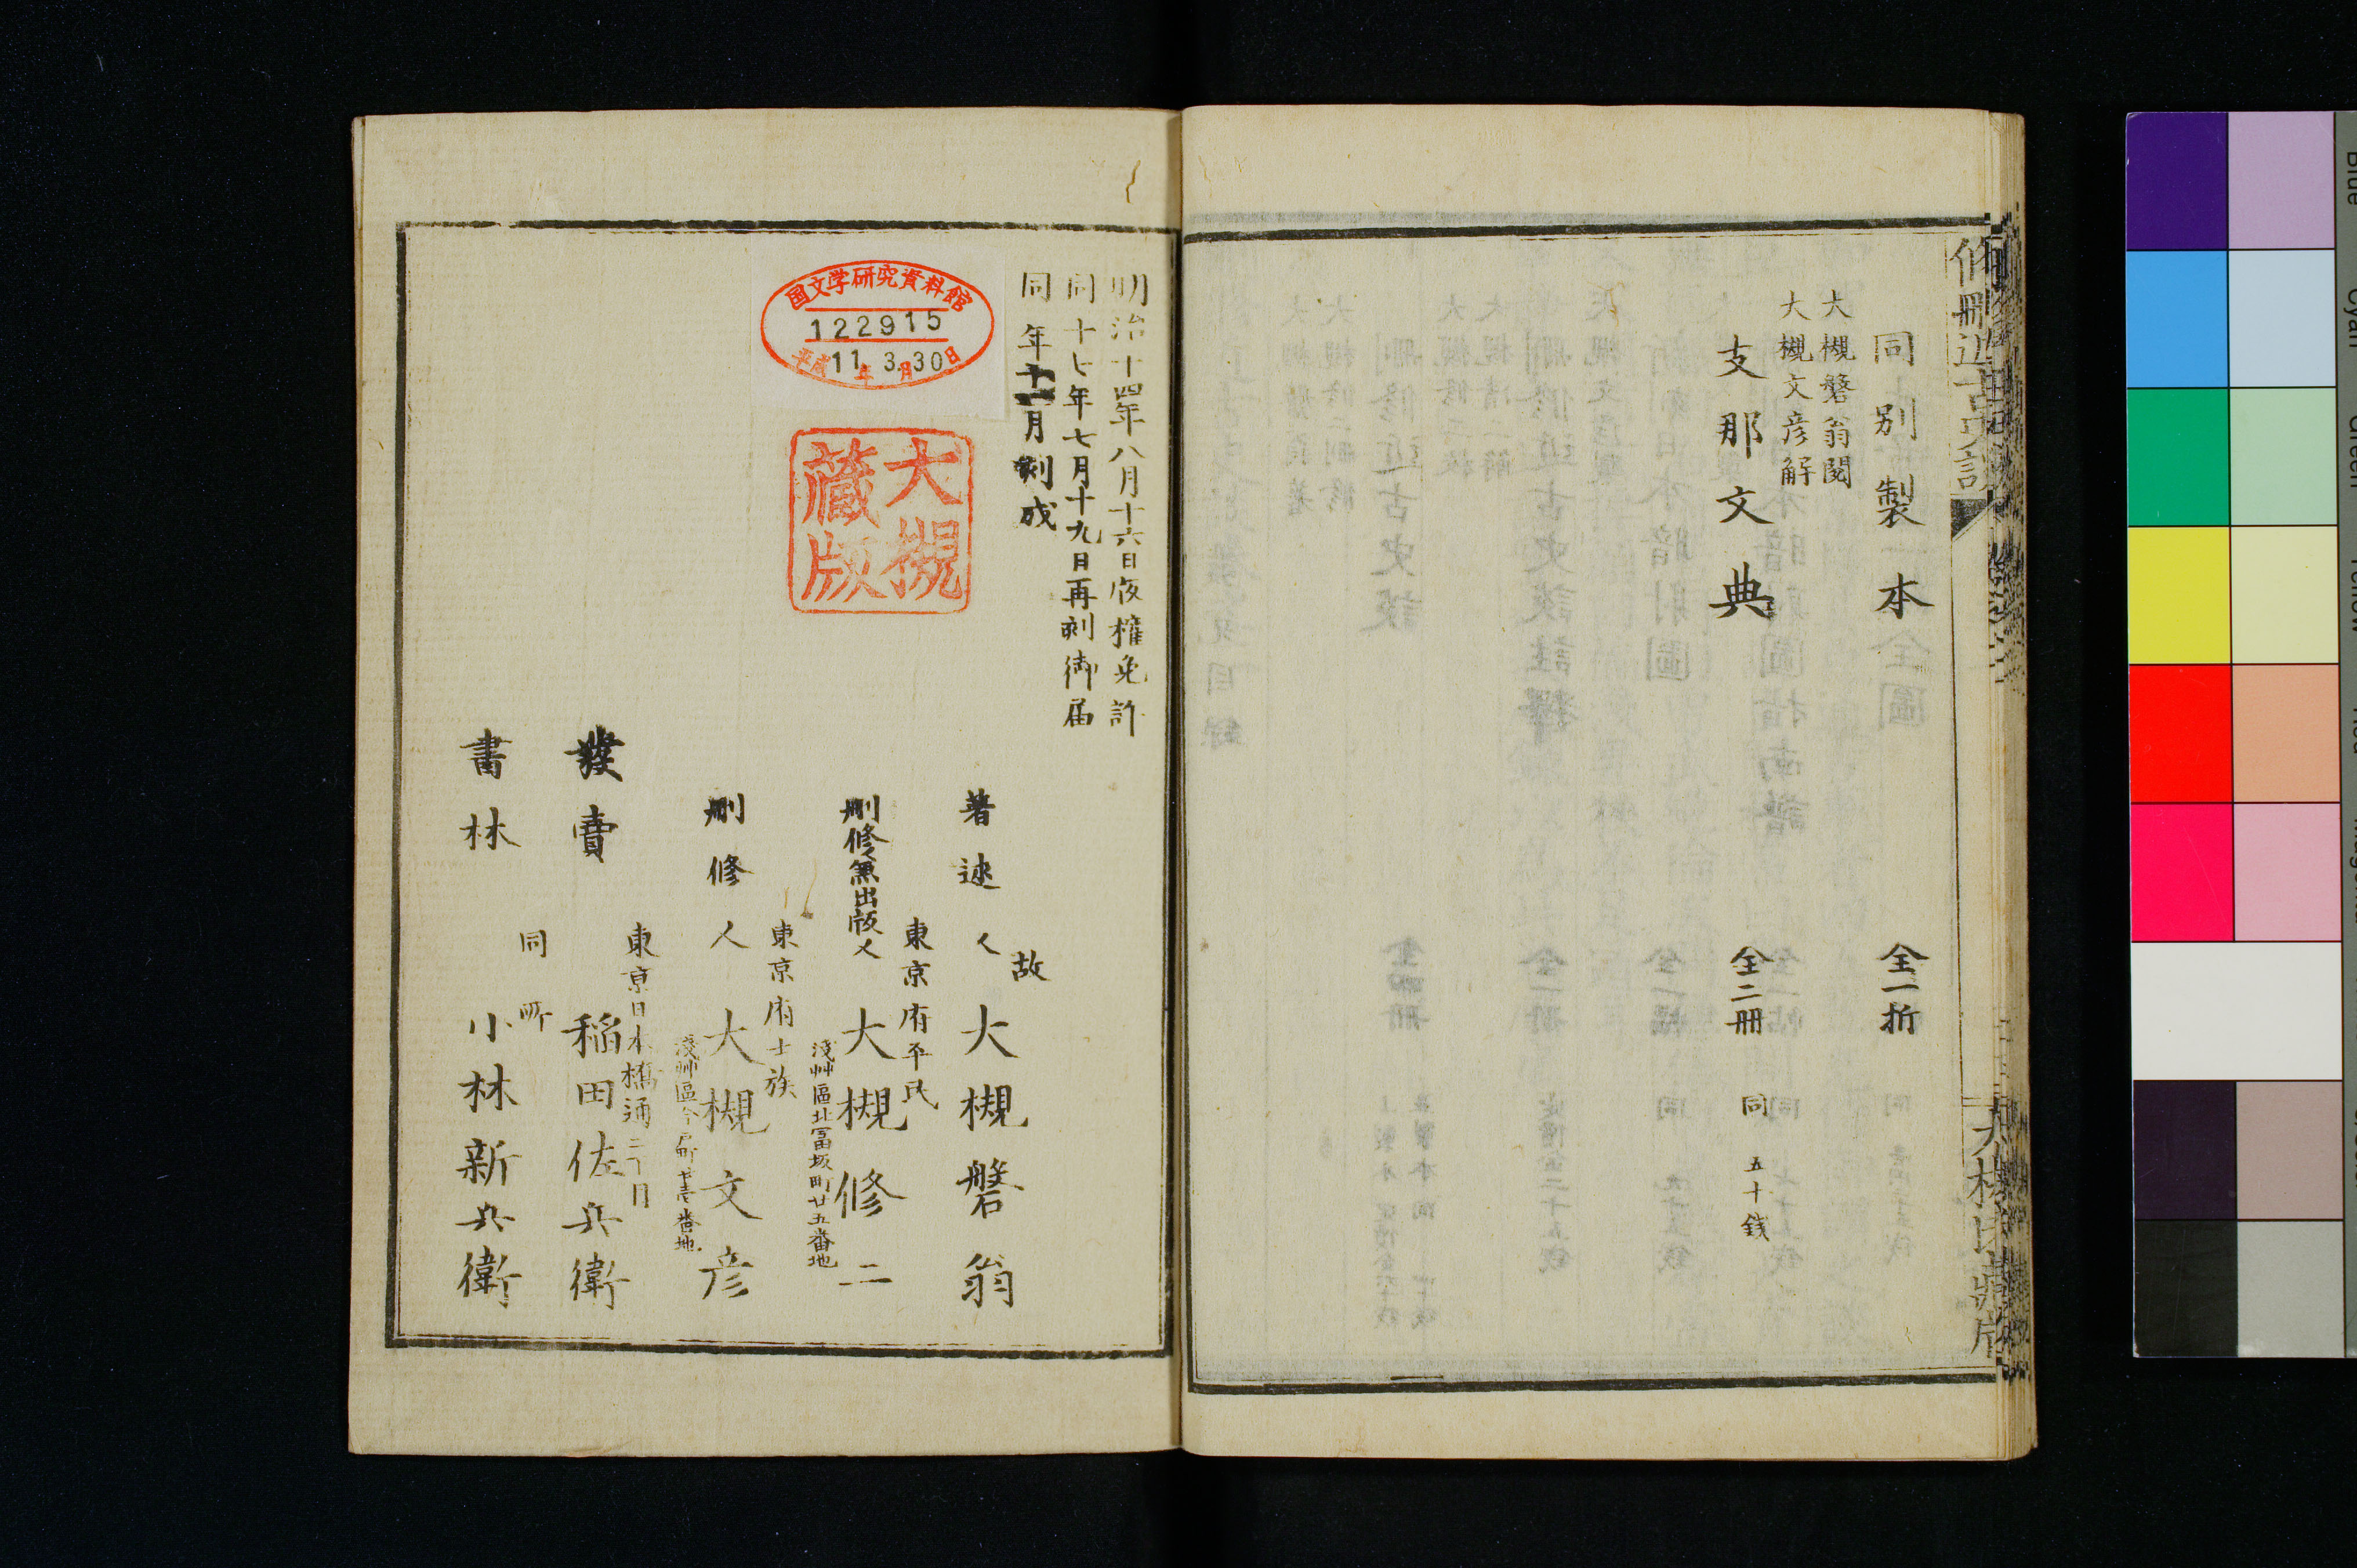 同別製本 全一折
大槻磐翁閲
大槻文彦解
支那文典 全二冊 同 五十錢
明治十四年八月十六日版權免許
同十七年七月十九日再刻御届
同年十二月刻成
国文学研究資料館
122915
平成11年3月30日
大槻
藏版
故
著述人 大槻磐翁
東京府平民
刪修兼出版人 大槻修二
淺艸區北富坂町廿五番地
東京府士族
刪修人 大槻文彦
東京日本橋通二丁目
發賣 稲田佐兵衛
同所
書林 小林新兵衛
Blue
Cyan
Green
Yellow
Red
Magenta